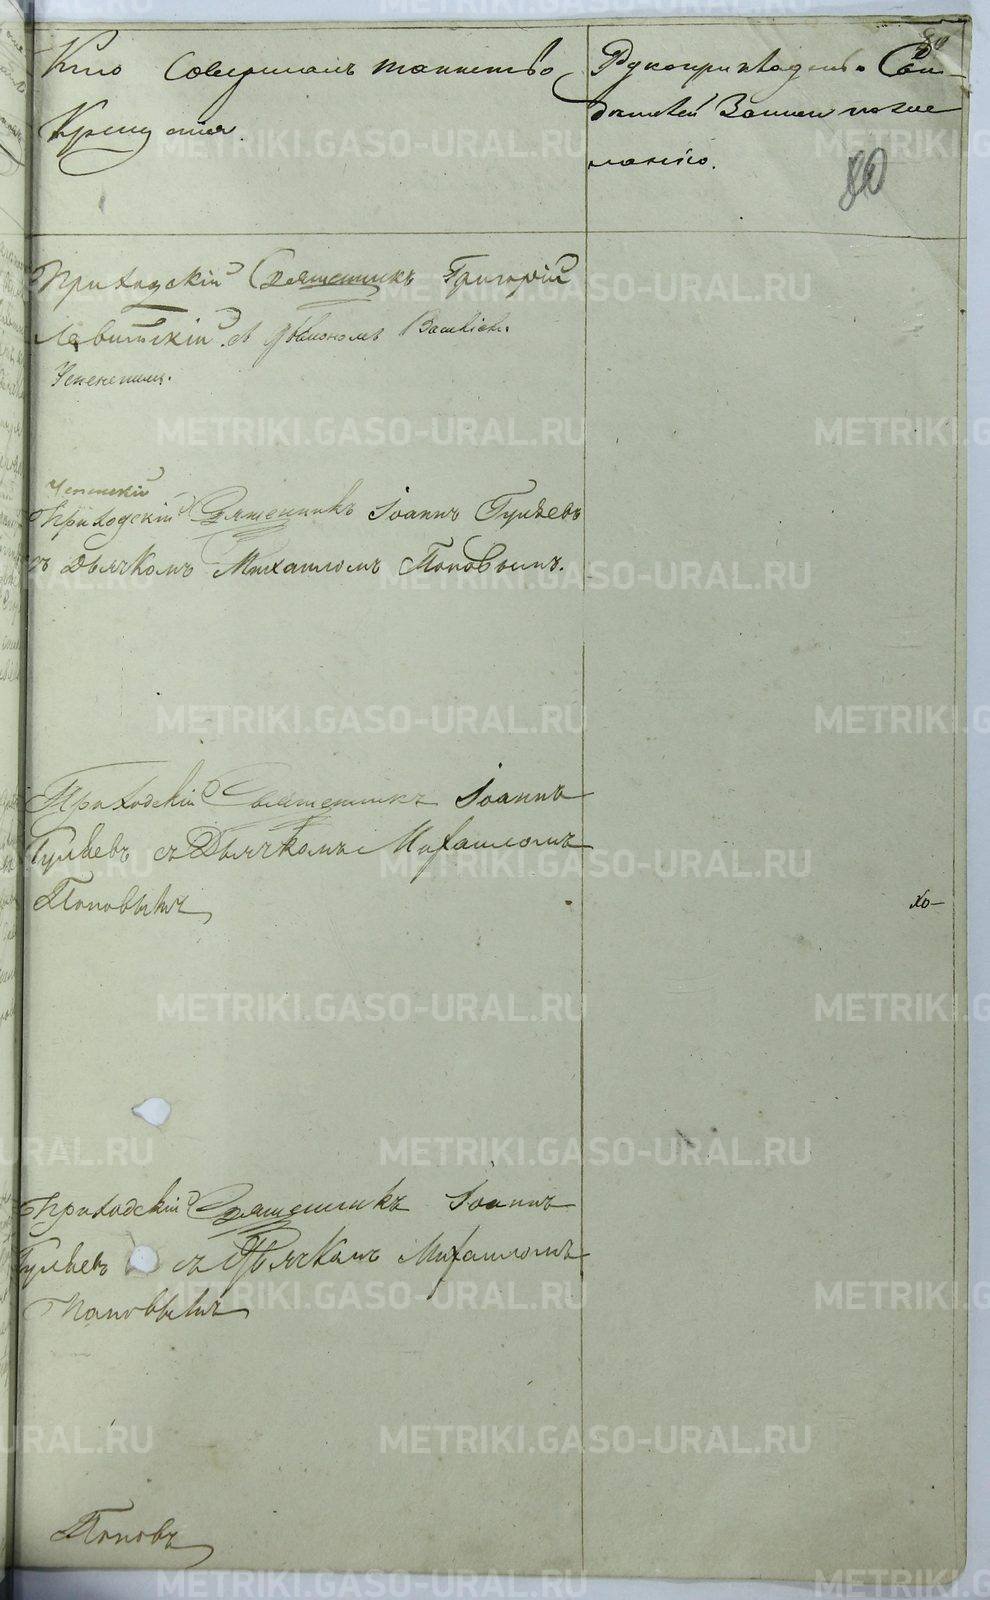 80
Кто Совершалъ таинство
Крещенія.
Рукоприкладство Сви-
дѣтелей Записи по же-
ланію.
80
Приходскій Священникъ Григорій
Левитскій съ Діакономъ
Успенскимъ.
Приходскій Священникъ Іоаннъ Гуляевъ
съ Дьячкомъ Михаиломъ Поповымъ.
Приходскій Священникъ Іоаннъ
Гуляевъ съ Дьячкомъ Михаиломъ
Поповымъ
хо-
Приходскій Священникъ Іоаннъ
Гуляевъ съ Дьячкомъ Михаиломъ
Поповымъ
Поповъ
METRIKI.GASO-URAL.RU